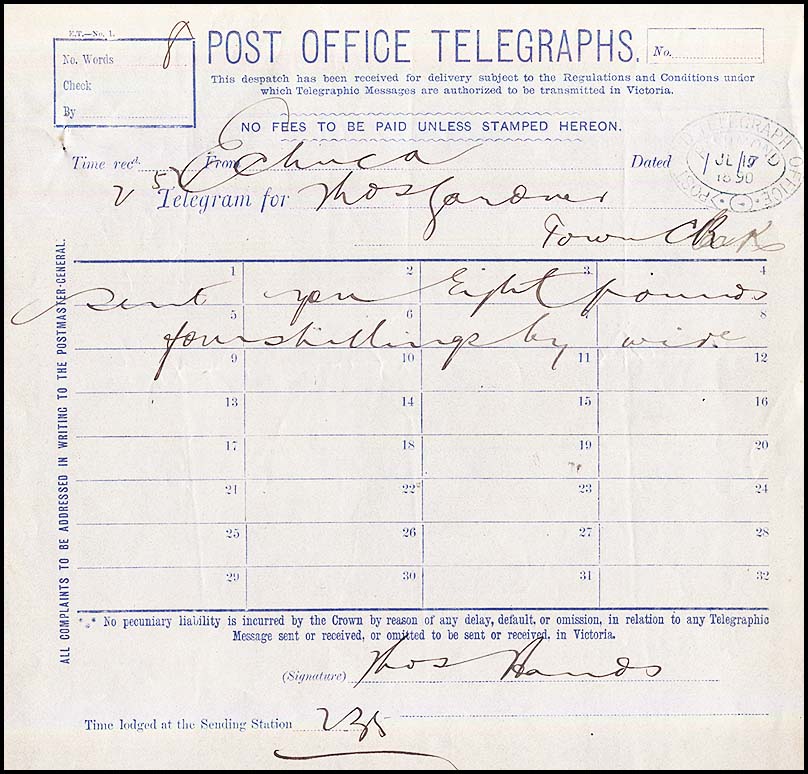 E.T.—No. 1.
No. Words 8
Check
By
POST OFFICE TELEGRAPHS.
No.
This despatch has been received for delivery subject to the Regulations and Conditions under
which Telegraphic Messages are authorized to be transmitted in Victoria.
NO FEES TO BE PAID UNLESS STAMPED HEREON.
Time recd. From Echuca Dated
POST & TELEGRAPH OFFICE
JL 17
1890
2 52 Telegram for Thos Gardner
Town Clerk
1 2 3 4
sent you Eight pounds
5 6 7 8
four shillings by wire
9 10 11 12
13 14 15 16
17 18 19 20
21 22 23 24
25 26 27 28
29 30 31 32
*** No pecuniary liability is incurred by the Crown by reason of any delay, default, or omission, in relation to any Telegraphic
Message sent or received, or omitted to be sent or received, in Victoria.
(Signature) Thos Hands
Time lodged at the Sending Station 235
ALL COMPLAINTS TO BE ADDRESSED IN WRITING TO THE POSTMASTER-GENERAL.